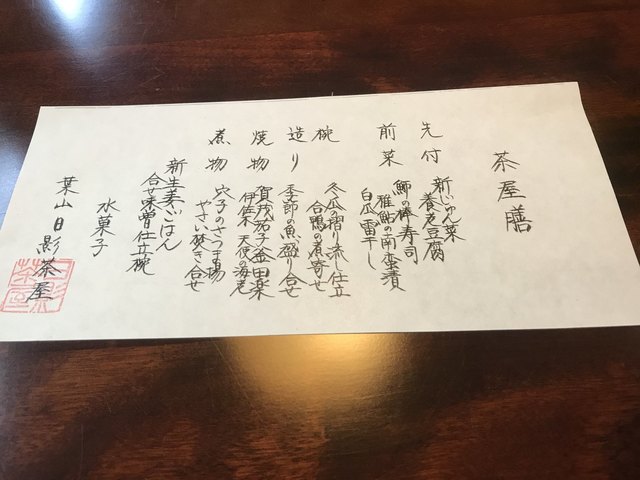 茶屋膳
先付
新じゅん菜
養老豆腐
前菜
鯵の棒寿司
稚鮎の南蛮漬
白瓜雷干し
椀
冬瓜の摺り流し仕立
合鴨の煮寄せ
造り
季節の魚盛り合せ
焼物
賀茂茄子金田楽
天使の海老
煮物
穴子のさつま揚
やさい焚き合せ
新生姜ごはん
合せ味噌仕立椀
水菓子
葉山日影茶屋